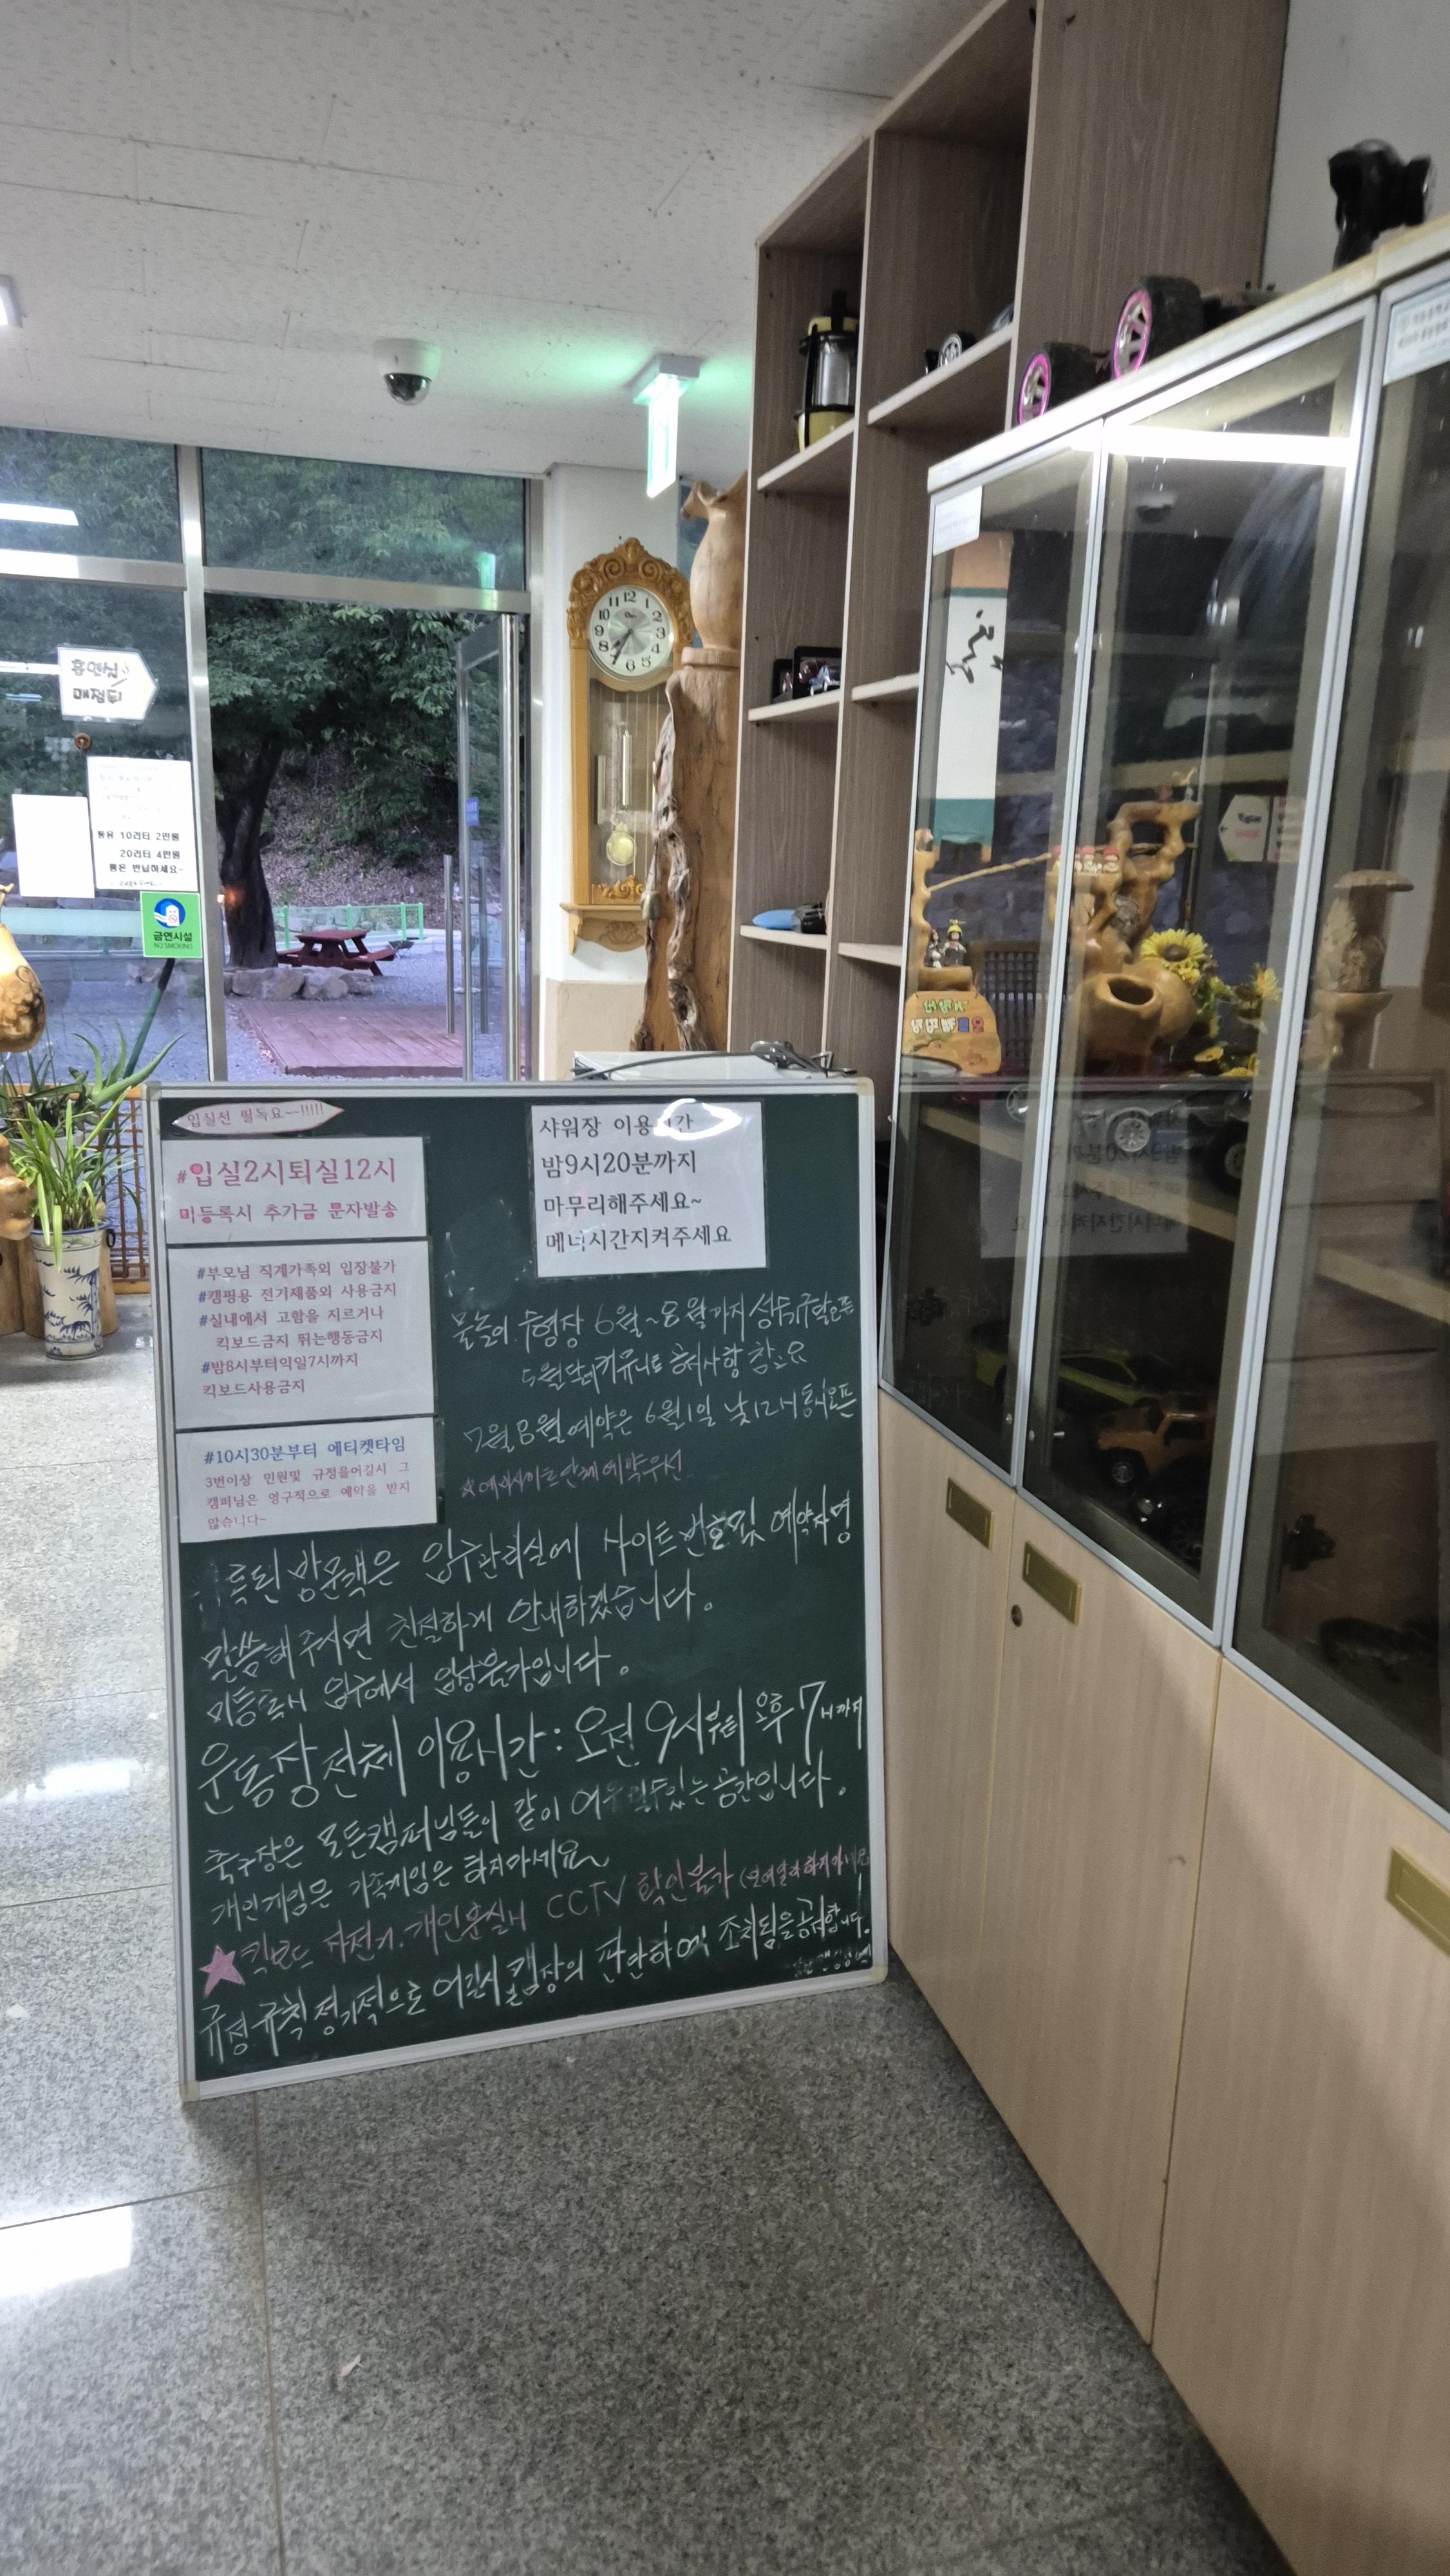 흡연실
매점뒤
등유 10리터 2만원
20리터 4만원
통은 반납하세요~
금연시설
NO SMOKING
입실전 필독요~~!!!!!
#입실2시퇴실12시
미등록시 추가금 문자발송
#부모님 직계가족외 입장불가
#캠핑용 전기제품외 사용금지
#실내에서 고함을 지르거나
킥보드금지 뛰는행동금지
#밤8시부터익일7시까지
킥보드사용금지
#10시30분부터 에티켓타임
3번이상 민원및 규정을어길시 그
캠퍼님은 영구적으로 예약을 받지
않습니다~
샤워장 이용
밤9시20분까지
마무리해주세요~
메너시간지켜주세요
물놀이 수영장 6월~8월까지
5월 공지사항 참고요
7월8월예약은 6월1일 낮12시 동시오픈
예약우선
방문객은 입구관리실에 사이트번호및 예약자명
말씀해주시면 친절하게 안내하겠습니다.
미등록시 입구에서 입장불가입니다.
운동장전체 이용시간: 오전 9시부터 오후 7시까지
축구장은 모든캠퍼님들이 같이 있는 공간입니다.
개인게임은 가족게임은 하지마세요
★킥보드 자전거.개인분실시 CCTV 확인불가
규정.규칙 정기적으로 어길시 캠장의 판단하에 조치됨을공지합니다.